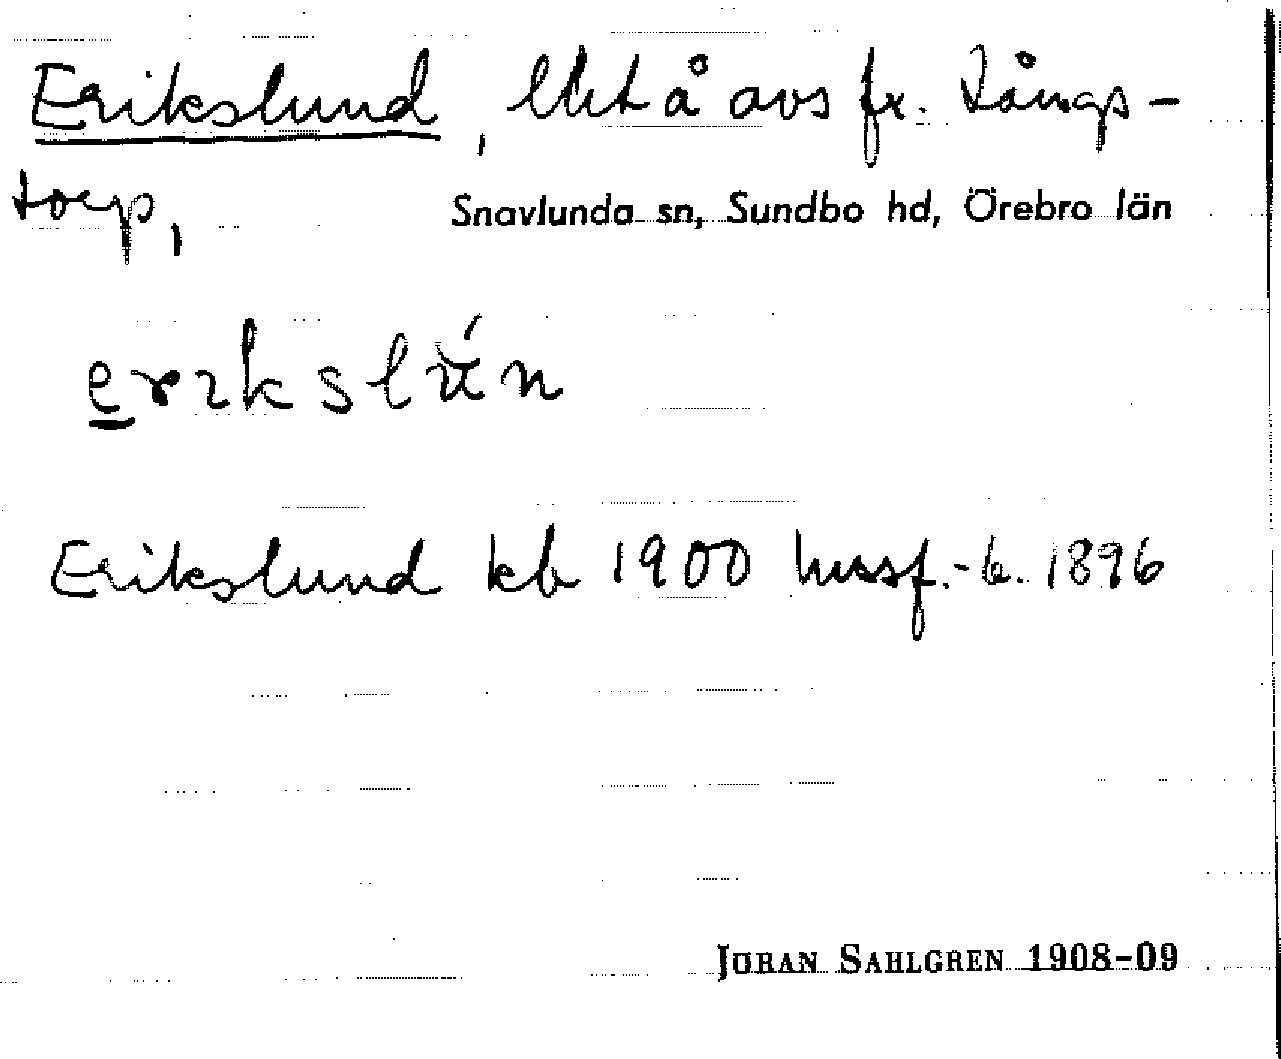 Erikslund, lht å avs fr. Tångs-
torp,
Snavlunda sn, Sundbo hd, Örebro län
Erikslund kb 1900 husf.-b. 1896
JÖRAN SAHLGREN 1908-09